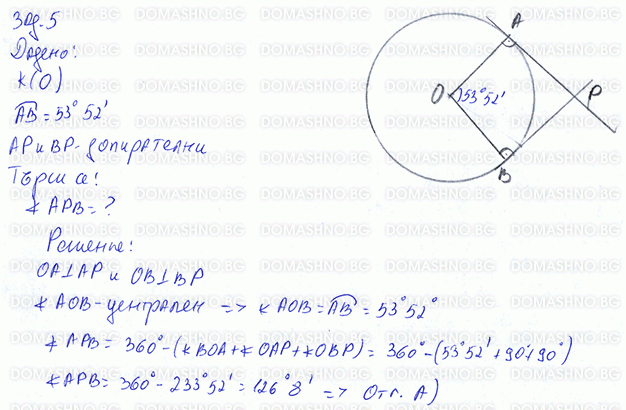 Зад.5
Дадено:
k(O)
AB = 53° 52'
AP и BP - допирателни
Търси се:
∢ APB = ?
Решение:
OA⊥AP и OB⊥BP
∢ AOB - централен => ∢ AOB = AB = 53° 52°
∢ APB = 360° - (∢ BOA + ∢ OAP + ∢ OBP) = 360° - (53° 52' + 90° + 90°)
∢ APB = 360° - 233° 52' = 126° 8' => Отг. А)
A
O
53° 52'
P
B
DOMASHNO.BG